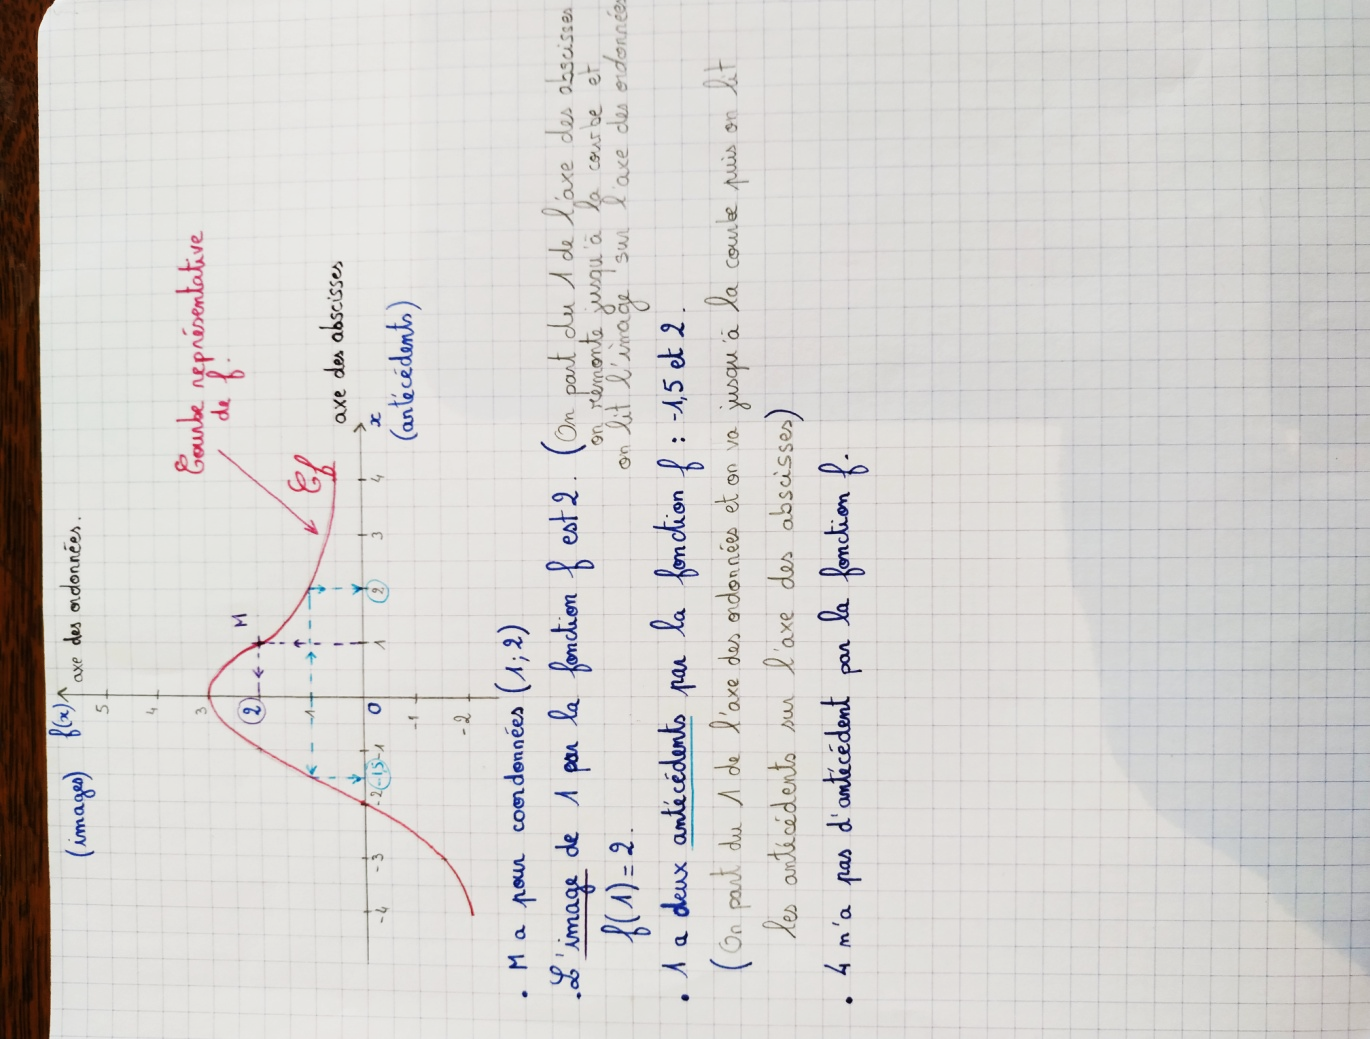 (images) f(x) axe des ordonnées.
5
4
3
2
1
0
-1
-2
-4 -3 -2 -1,5 -1 1 2 3 4
M
Courbe représentative
de f.
Cf
axe des abscisses
x
(antécédents)
• M a pour coordonnées (1;2)
• L'image de 1 par la fonction f est 2. (On part du 1 de l'axe des abscisses
on remonte jusqu'à la courbe et
on lit l'image sur l'axe des ordonnées
f(1)=2.
• 1 a deux antécédents par la fonction f : -1,5 et 2.
(On part du 1 de l'axe des ordonnées et on va jusqu'à la courbe puis on lit
les antécédents sur l'axe des abscisses)
• 4 n'a pas d'antécédent par la fonction f.